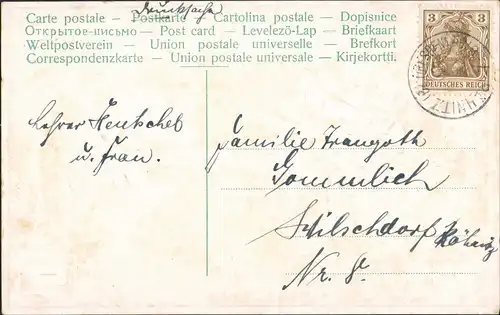 Drucksache
Carte postale – Postkarte – Cartolina postale – Dopisnice
Открытое-письмо – Post card – Levelező-Lap – Briefkaart
Weltpostverein – Union postale universelle – Brefkort
Correspondenzkarte – Union postale universale – Kirjekortti.
3 3
DEUTSCHES REICH
Lehrer Hentschel
u. Frau.
Familie Traugoth
Gommlich
Wilschdorf
Nr. 8.